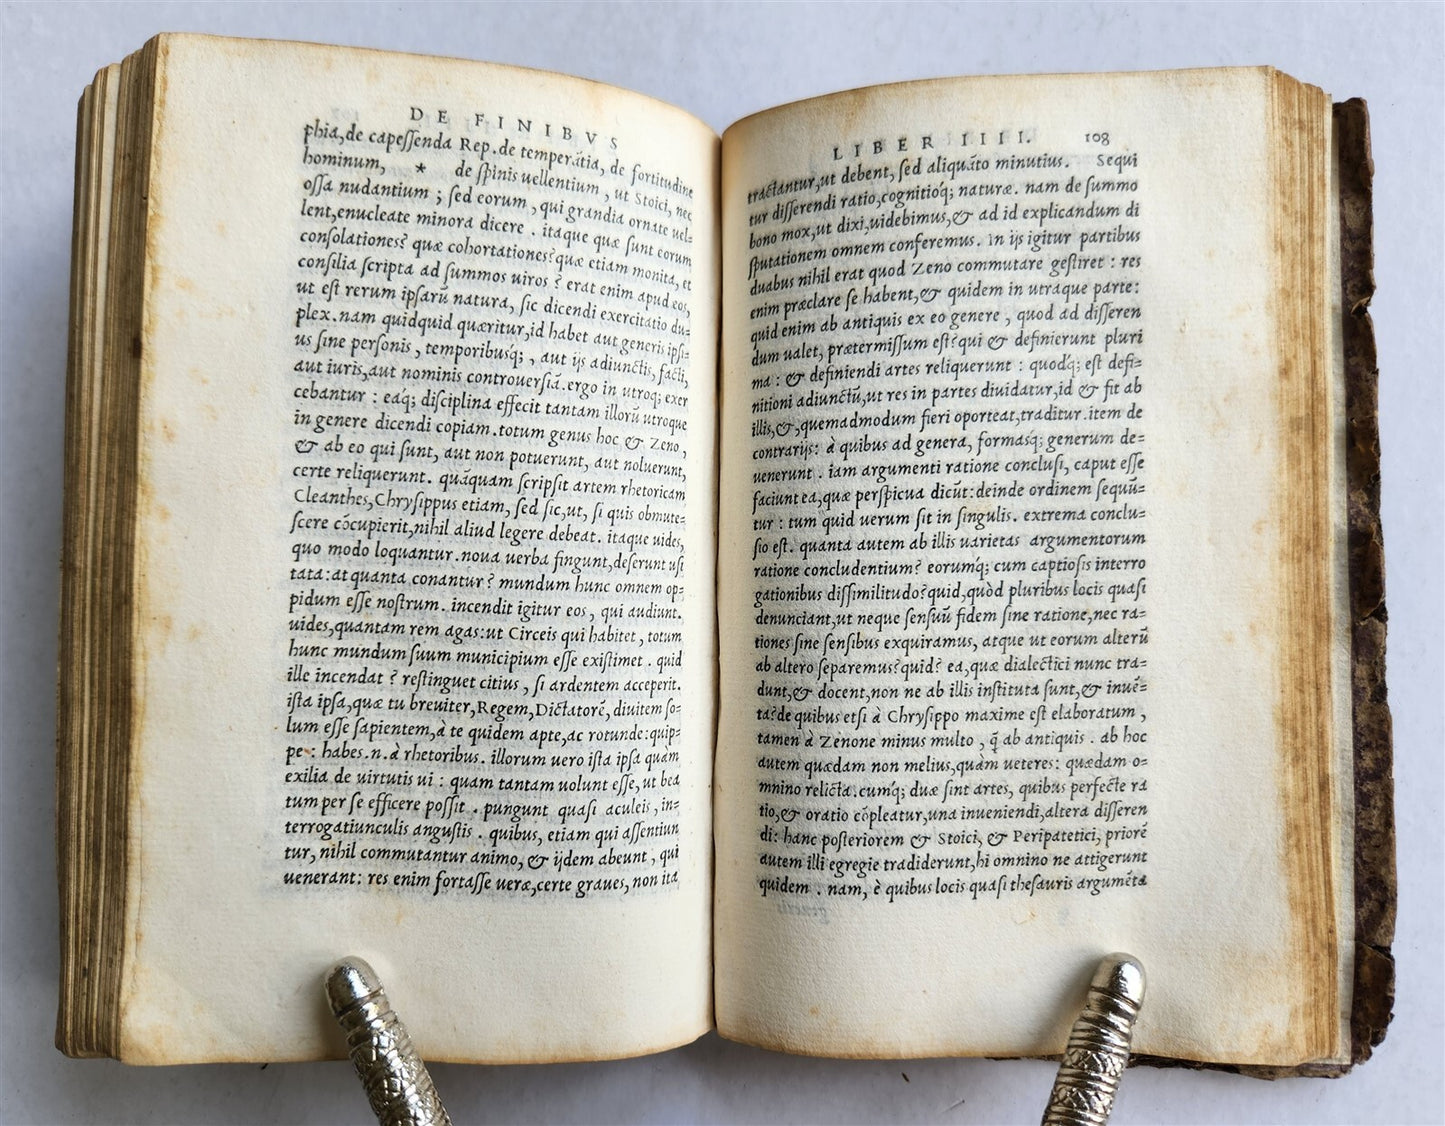 DE FINIBVS
phia,de capeſſenda Rep.de temperãtia, de fortitudine
hominum, * de ſpinis uellentium, ut Stoici, nec
oſſa nudantium ; ſed eorum, qui grandia ornate uel=
lent,enucleate minora dicere . itaque quæ ſunt eorum
conſolationes? quæ cohortationes? quæ etiam monita, et
conſilia ſcripta ad ſummos uiros ? erat enim apud eos,
ut eſt rerum ipſarũ natura, ſic dicendi exercitatio du=
plex.nam quidquid quæritur,id habet aut generis ipſi=
us ſine perſonis, temporibusq́; , aut ijs adiunctis, facti,
aut iuris,aut nominis controuerſiã.ergo in utroq; exer
cebantur : eaq́; diſciplina effecit tantam illorũ utroque
in genere dicendi copiam.totum genus hoc & Zeno,
& ab eo qui ſunt, aut non potuerunt, aut noluerunt,
certe reliquerunt. quãquam ſcripſit artem rhetoricam
Cleanthes,Chryſippus etiam, ſed ſic,ut, ſi quis obmute=
ſcere cõcupierit,nihil aliud legere debeat. itaque uides,
quo modo loquantur.noua uerba fingunt,deſerunt uſi
tata:at quanta conantur? mundum hunc omnem op=
pidum eſſe noſtrum. incendit igitur eos, qui audiunt.
uides,quantam rem agas:ut Circeis qui habitet, totum
hunc mundum ſuum municipium eſſe exiſtimet . quid
ille incendat ? reſtinguet citius, ſi ardentem acceperit.
iſta ipſa,quæ tu breuiter,Regem,Dictatorẽ, diuitem ſo=
lum eſſe ſapientem,à te quidem apte,ac rotunde:quip=
pe : habes.n.à rhetoribus. illorum uero iſta ipſa quàm
exilia de uirtutis ui : quam tantam uolunt eſſe, ut bea
tum per ſe efficere poſſit . pungunt quaſi aculeis, in=
terrogatiunculis anguſtis . quibus, etiam qui aſſentiun
tur, nihil commutantur animo, & ijdem abeunt, qui
uenerant: res enim fortaſſe ueræ,certe graues, non ita
LIBER IIII. 108
tractantur,ut debent, ſed aliquãto minutius. Sequi
tur diſſerendi ratio,cognitioq́; naturæ. nam de ſummo
bono mox,ut dixi,uidebimus,& ad id explicandum di
ſputationem omnem conferemus. In ijs igitur partibus
duabus nihil erat quod Zeno commutare geſtiret : res
enim præclare ſe habent,& quidem in utraque parte:
quid enim ab antiquis ex eo genere, quod ad diſſeren
dum ualet, prætermiſſum eſt? qui & definierunt pluri
ma : & definiendi artes reliquerunt : quodq́; eſt defi=
nitioni adiunctũ,ut res in partes diuidatur,id & fit ab
illis,&,quemadmodum fieri oporteat,traditur.item de
contrarijs: à quibus ad genera, formasq́; generum de=
uenerunt . iam argumenti ratione concluſi, caput eſſe
faciunt ea,quæ perſpicua dicũt:deinde ordinem ſequũ=
tur : tum quid uerum ſit in ſingulis. extrema conclu=
ſio eſt. quanta autem ab illis uarietas argumentorum
ratione concludentium? eorumq́; cum captioſis interro
gationibus diſſimilitudo? quid,quòd pluribus locis quaſi
denunciant,ut neque ſenſuũ fidem ſine ratione,nec ra=
tiones ſine ſenſibus exquiramus, atque ut eorum alterũ
ab altero ſeparemus? quid? ea,quæ dialectici nunc tra=
dunt,& docent,non ne ab illis inſtituta ſunt,& inuẽ=
ta? de quibus etſi à Chryſippo maxime eſt elaboratum,
tamen à Zenone minus multo, q̃ ab antiquis . ab hoc
autem quædam non melius,quàm ueteres: quædam o=
mnino relicta.cumq́; duæ ſint artes, quibus perfecte ra
tio,& oratio cõpleatur,una inueniendi,altera diſſeren
di: hanc poſteriorem & Stoici, & Peripatetici, priorẽ
autem illi egregie tradiderunt,hi omnino ne attigerunt
quidem . nam, è quibus locis quaſi theſauris argumẽta